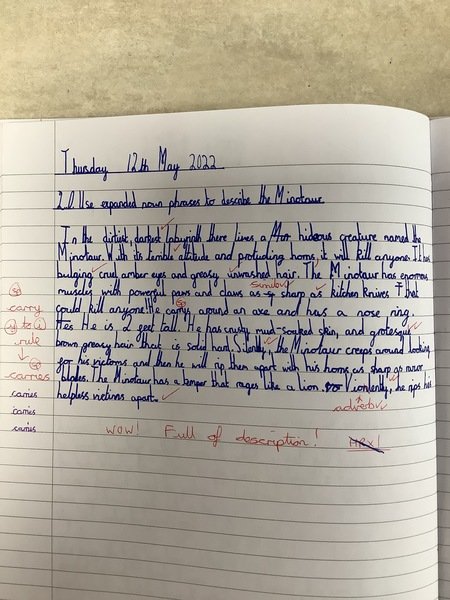 Thursday 12th May 2022
L.O Use expanded noun phrases to describe the Minotaur
In the dirtist, darkest labyrinth there lives a hideous creature named the
Minotaur. With its terrible attitude and protruding horns, it will kill anyone. It has
bulging cruel amber eyes and greasy unwashed hair. The Minotaur has enormous
simile
muscles with powerful paws and claws as sharp as kitchen knives that
could kill anyone. He carrys around an axe and has a nose ring.
sp
He is 2 feet tall. He has crusty mud-soaked skin, and grotesque
brown greasy hair that is solid hard. Silently, the Minotaur creeps around looking
for his victoms and then he will rip them apart with his horns as sharp as razor
blades. The Minotaur has a temper that rages like a lion. Violently, he rips his
helpless victims apart.
adverb
sp
carry
y to i
rule
carries
carries
carries
carries
WOW! Full of description!